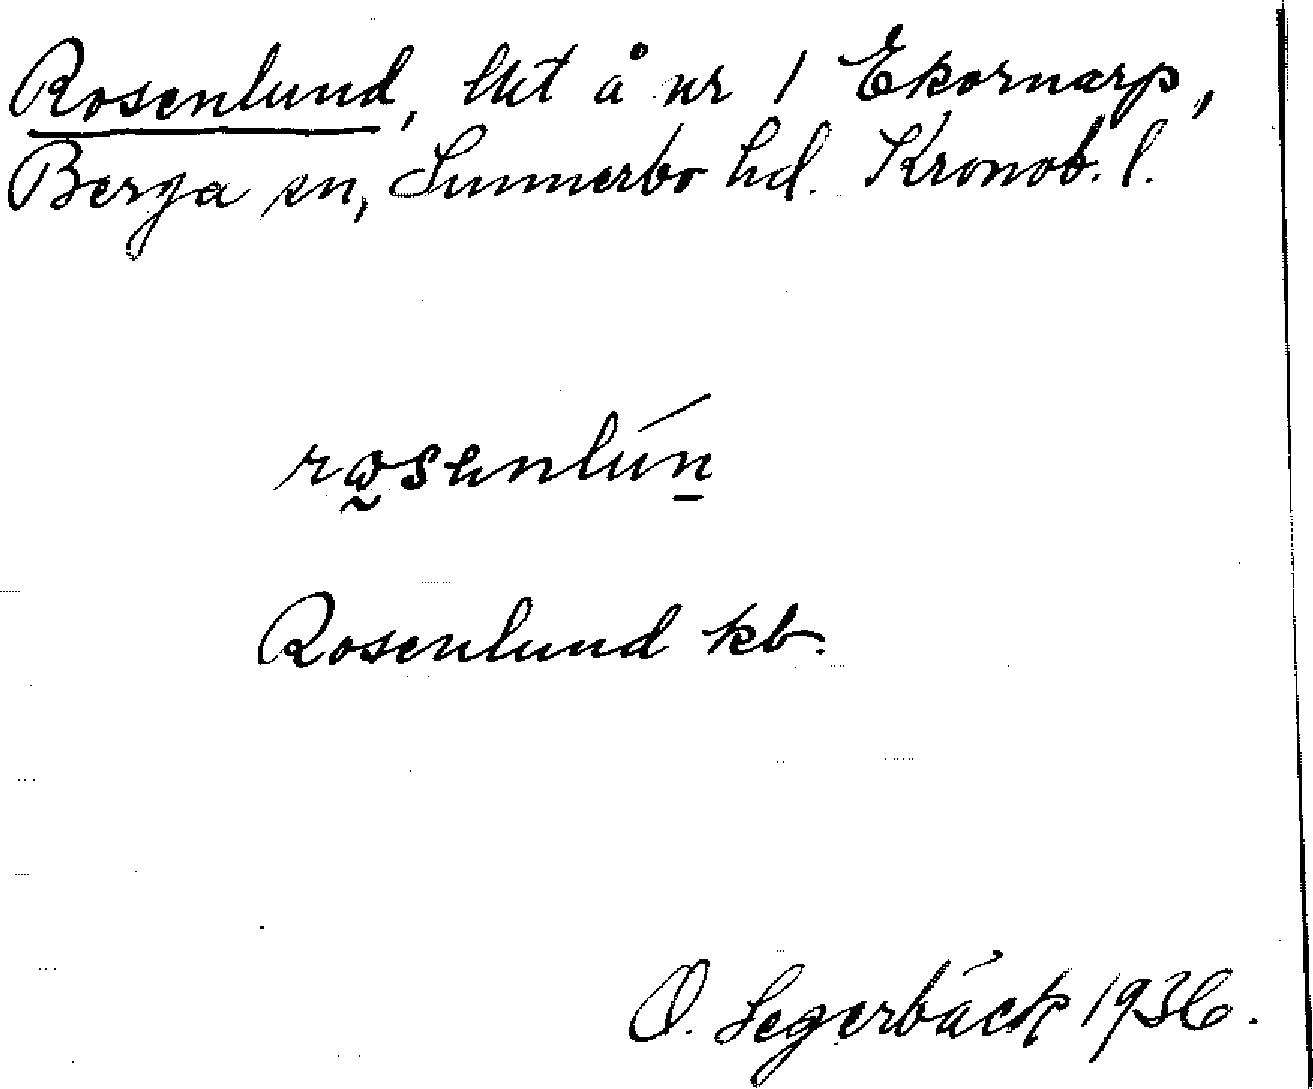 Rosenlund, lht å nr 1 Ekornarp,
Berga sn, Sunnerbo hd. Kronob. l.
Rosenlund kb.
O. Segerbäck 1936.